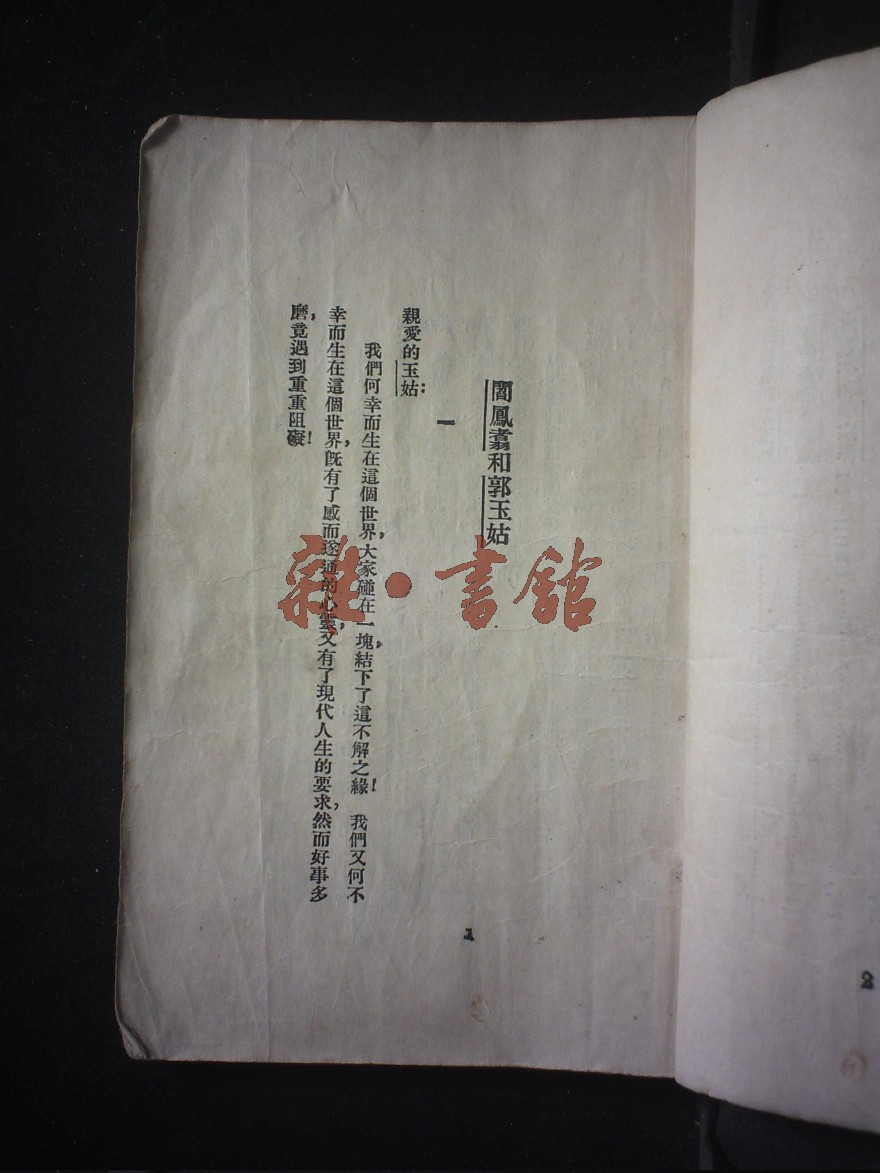 閻鳳翥和郭玉姑
一
親愛的玉姑：
我們何幸而生在這個世界，大家碰在一塊，結下了這不解之緣！我們又何不
幸而生在這個世界，旣有了感而遂通的心靈，又有了現代人生的要求，然而好事多
磨，竟遇到重重阻礙！
1
2
雜·書館